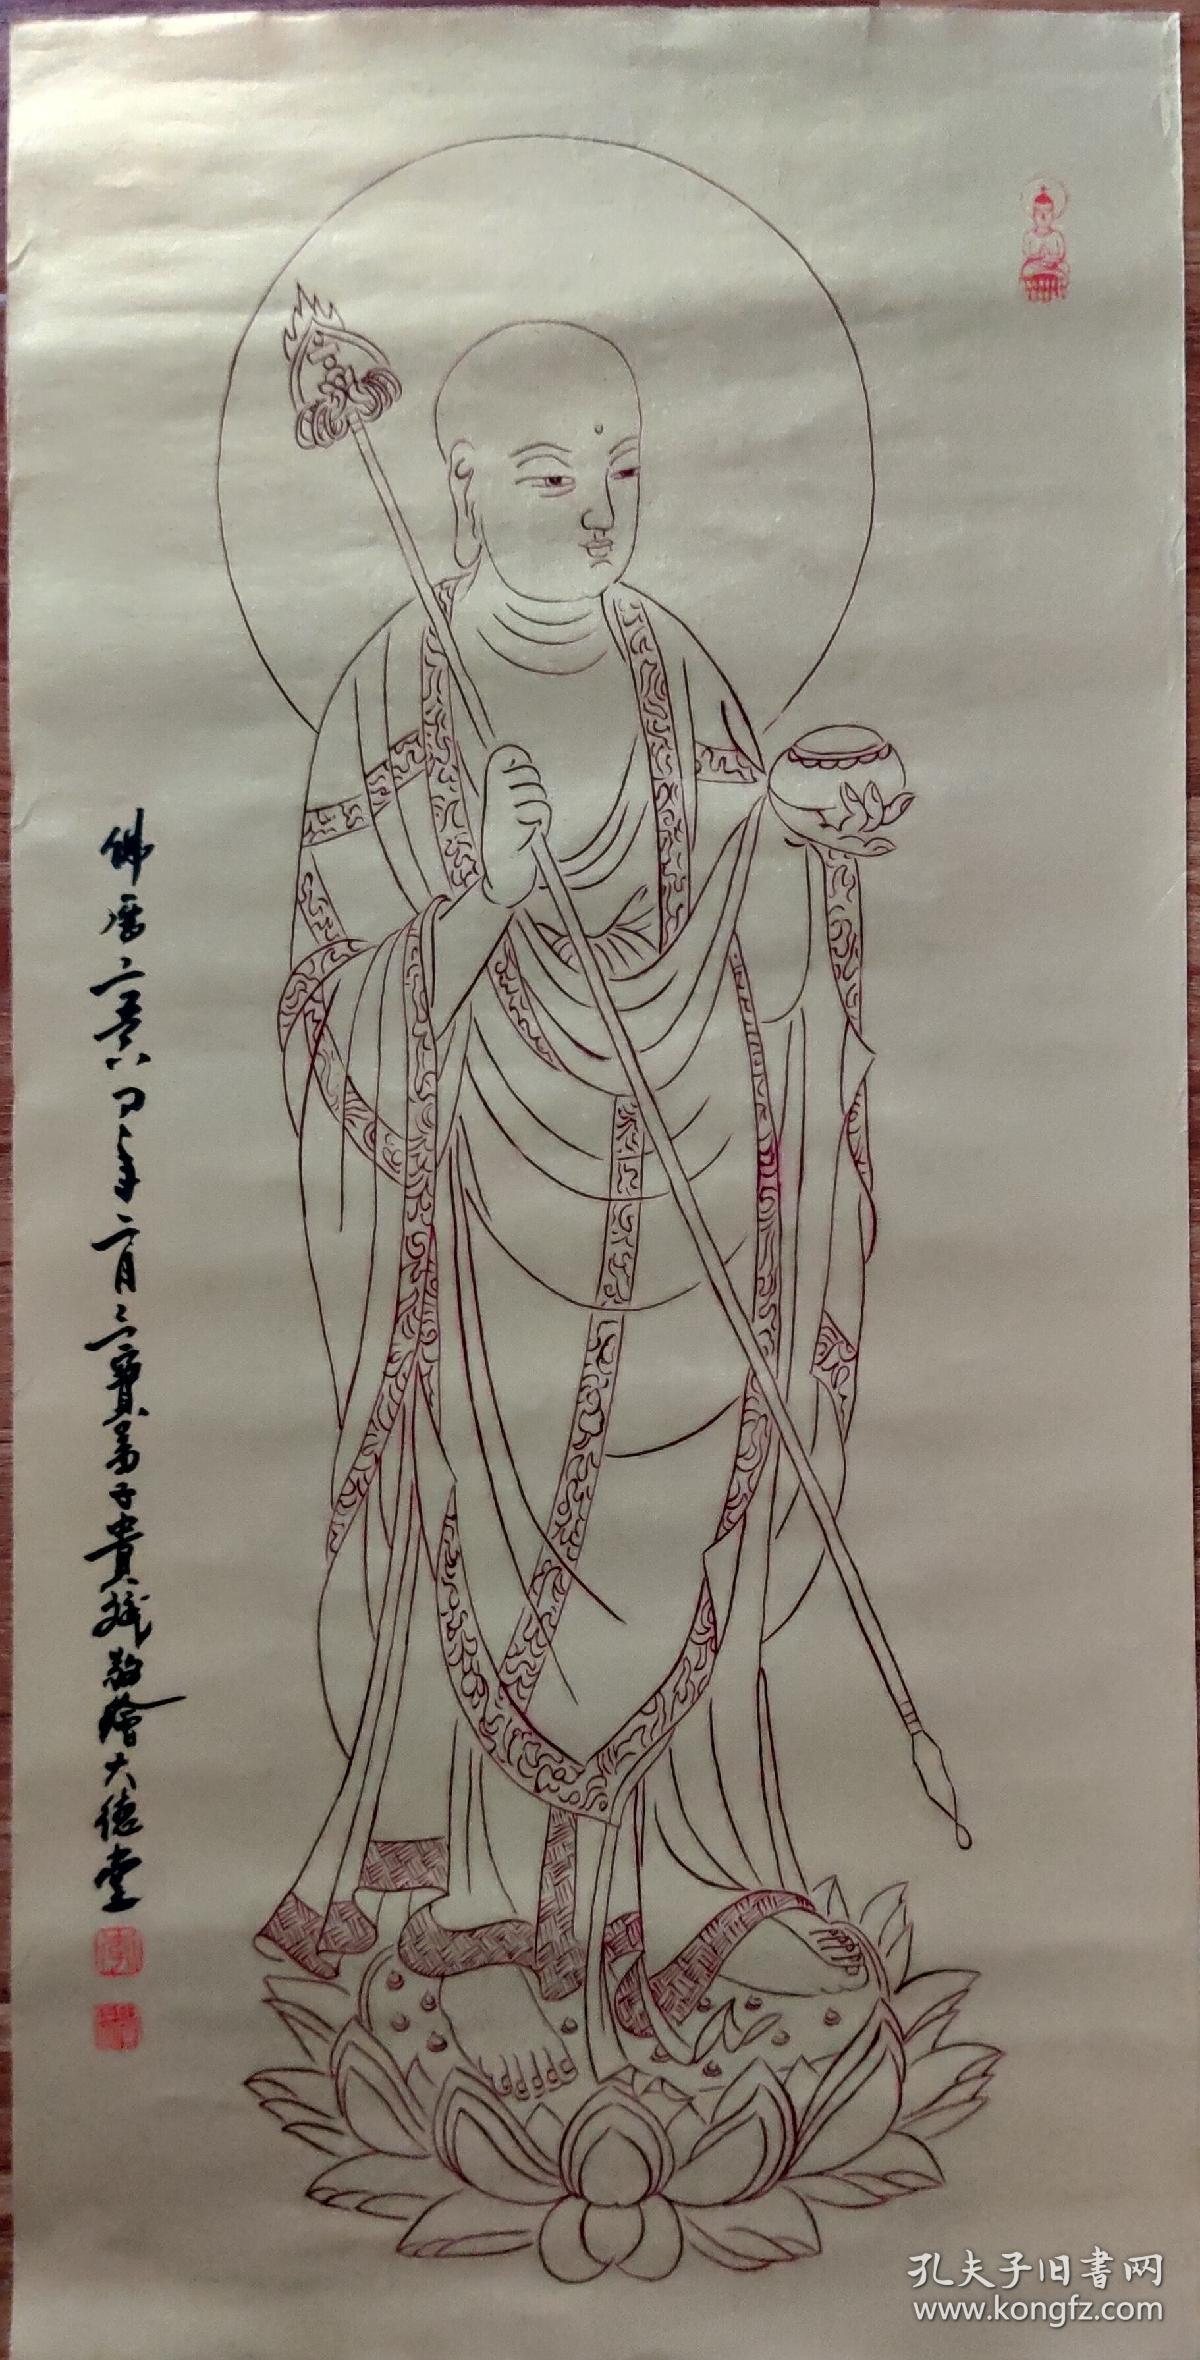 佛历二五六八四年二月三寶弟子貴斌敬繪大德堂
孔夫子旧書网
www.kongfz.com